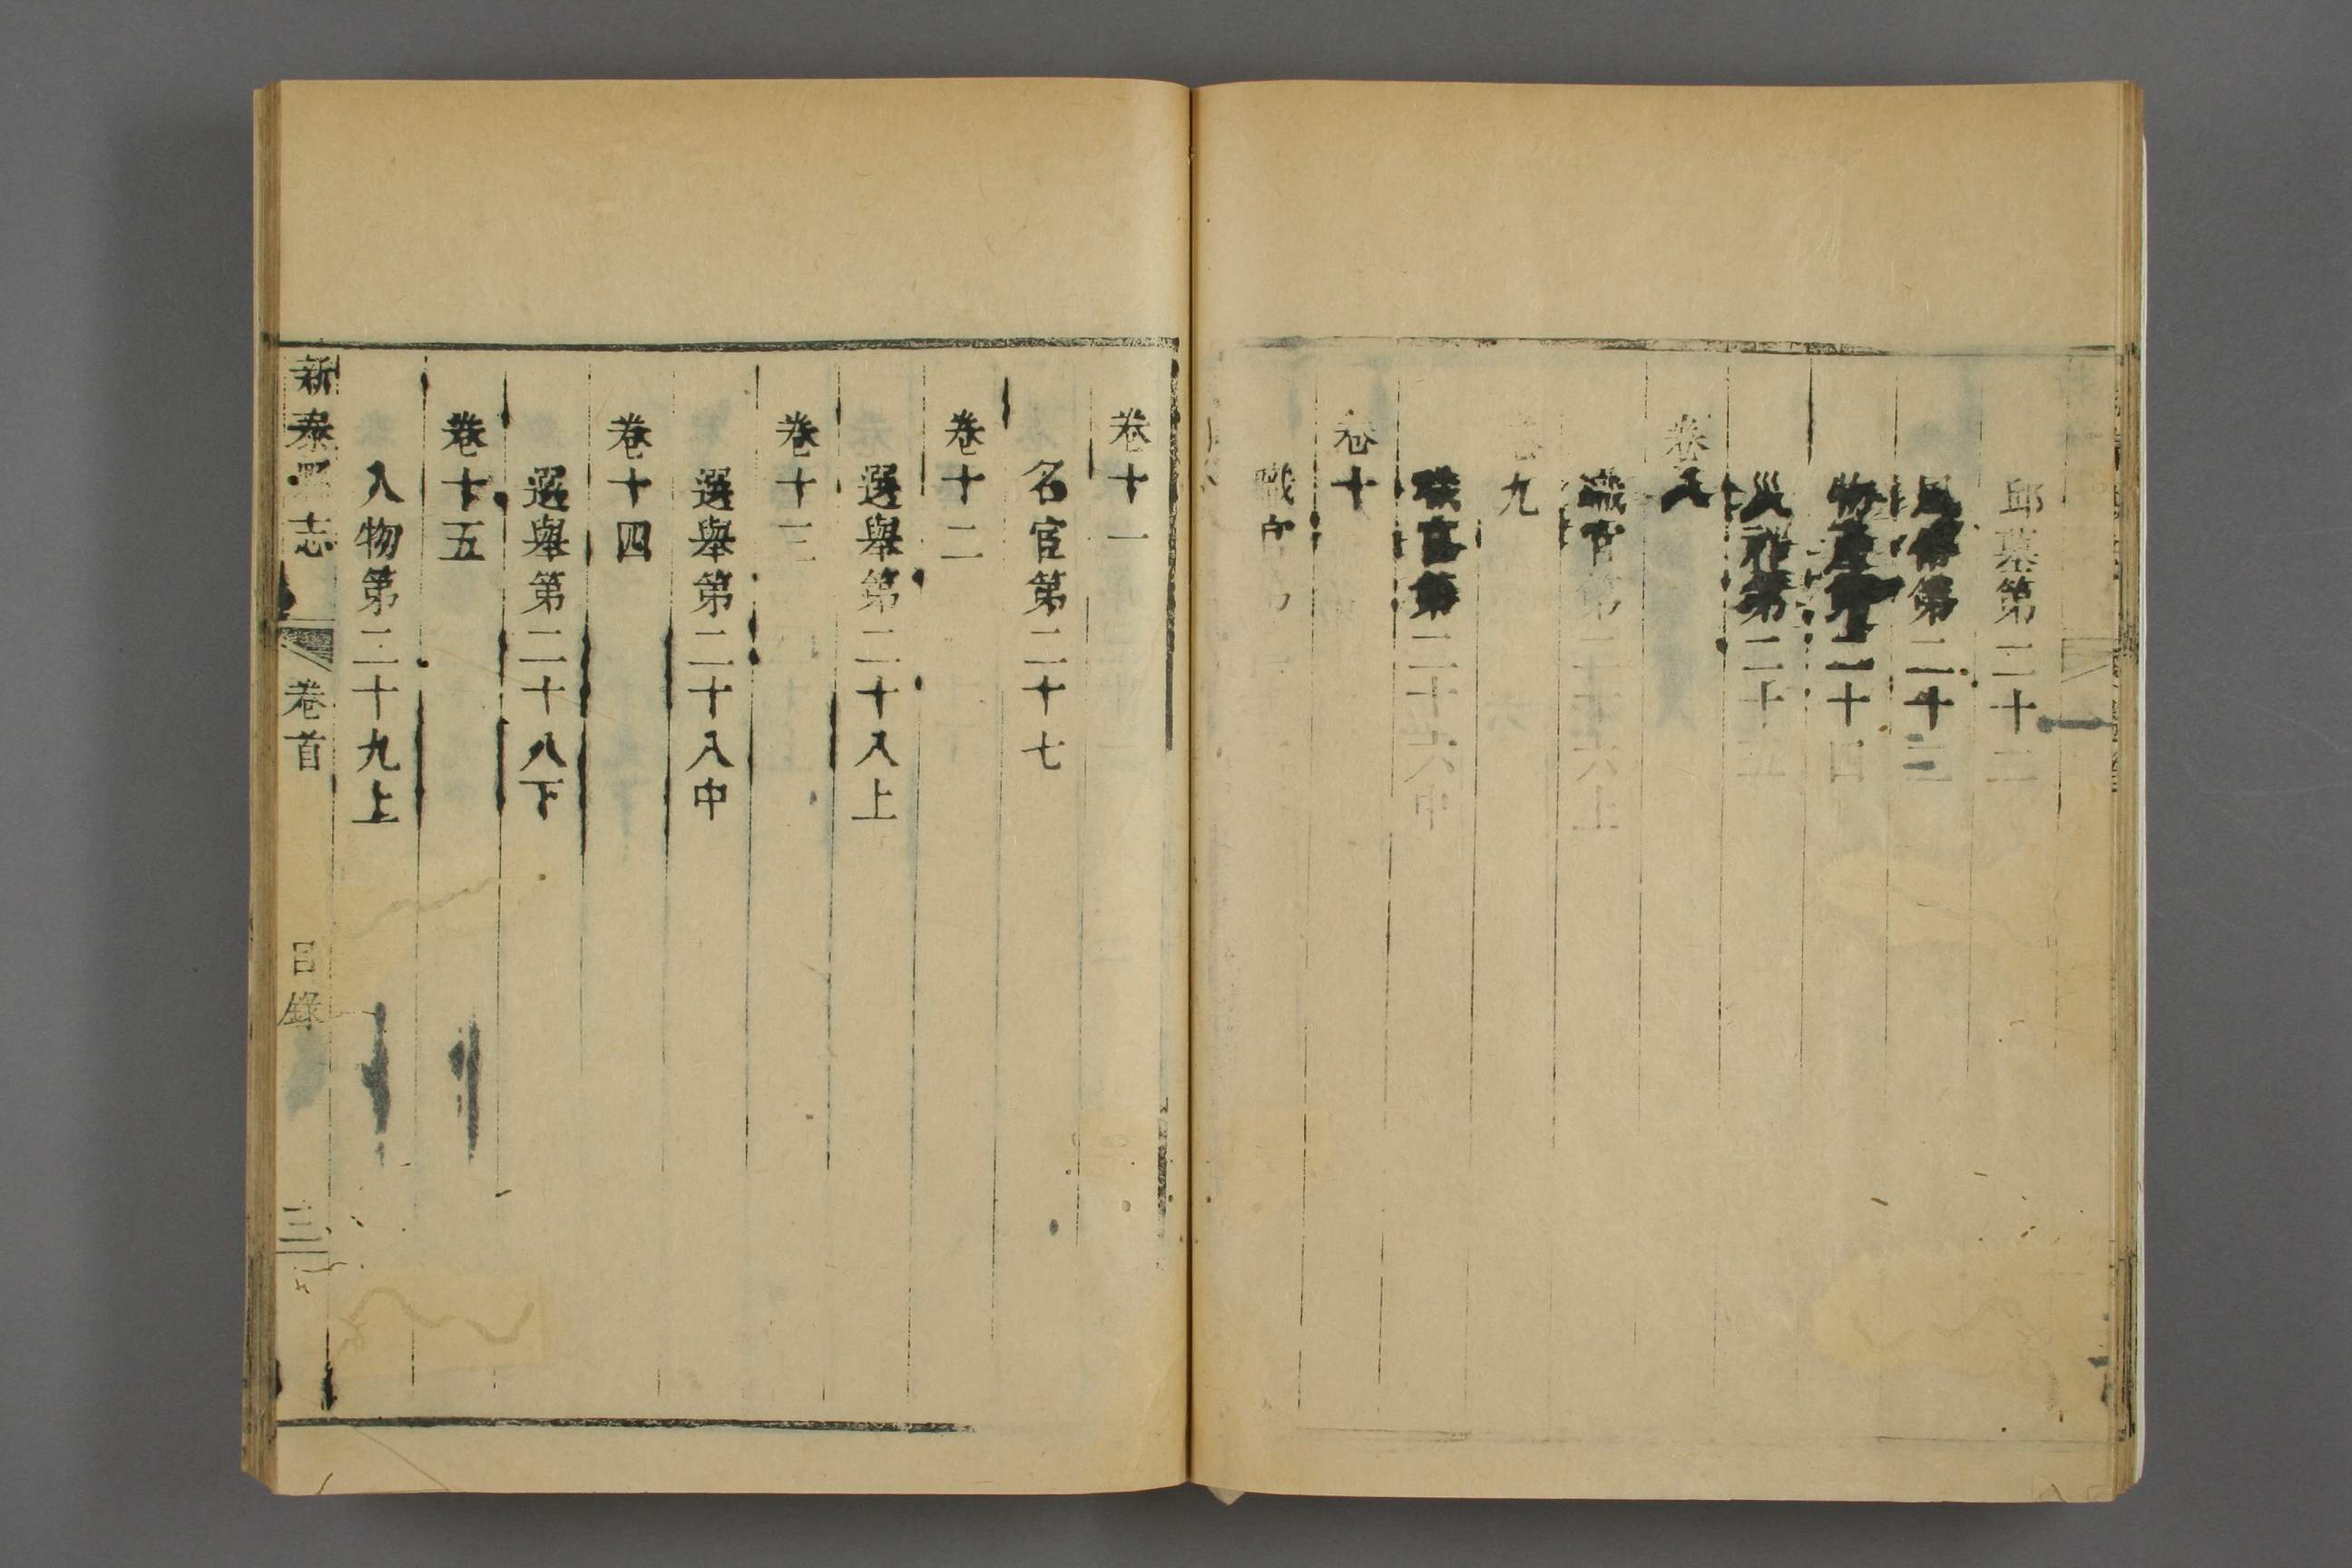 邱墓第二十二
風俗第二十三
物產第二十四
災祥第二十五
卷八
職官第二十六上
卷九
職官第二十六中
卷十
職官
卷十一
名宦第二十七
卷十二
選舉第二十八上
卷十三
選舉第二十八中
卷十四
選舉第二十八下
卷十五
人物第二十九上
新泰縣志
卷首
目錄
三